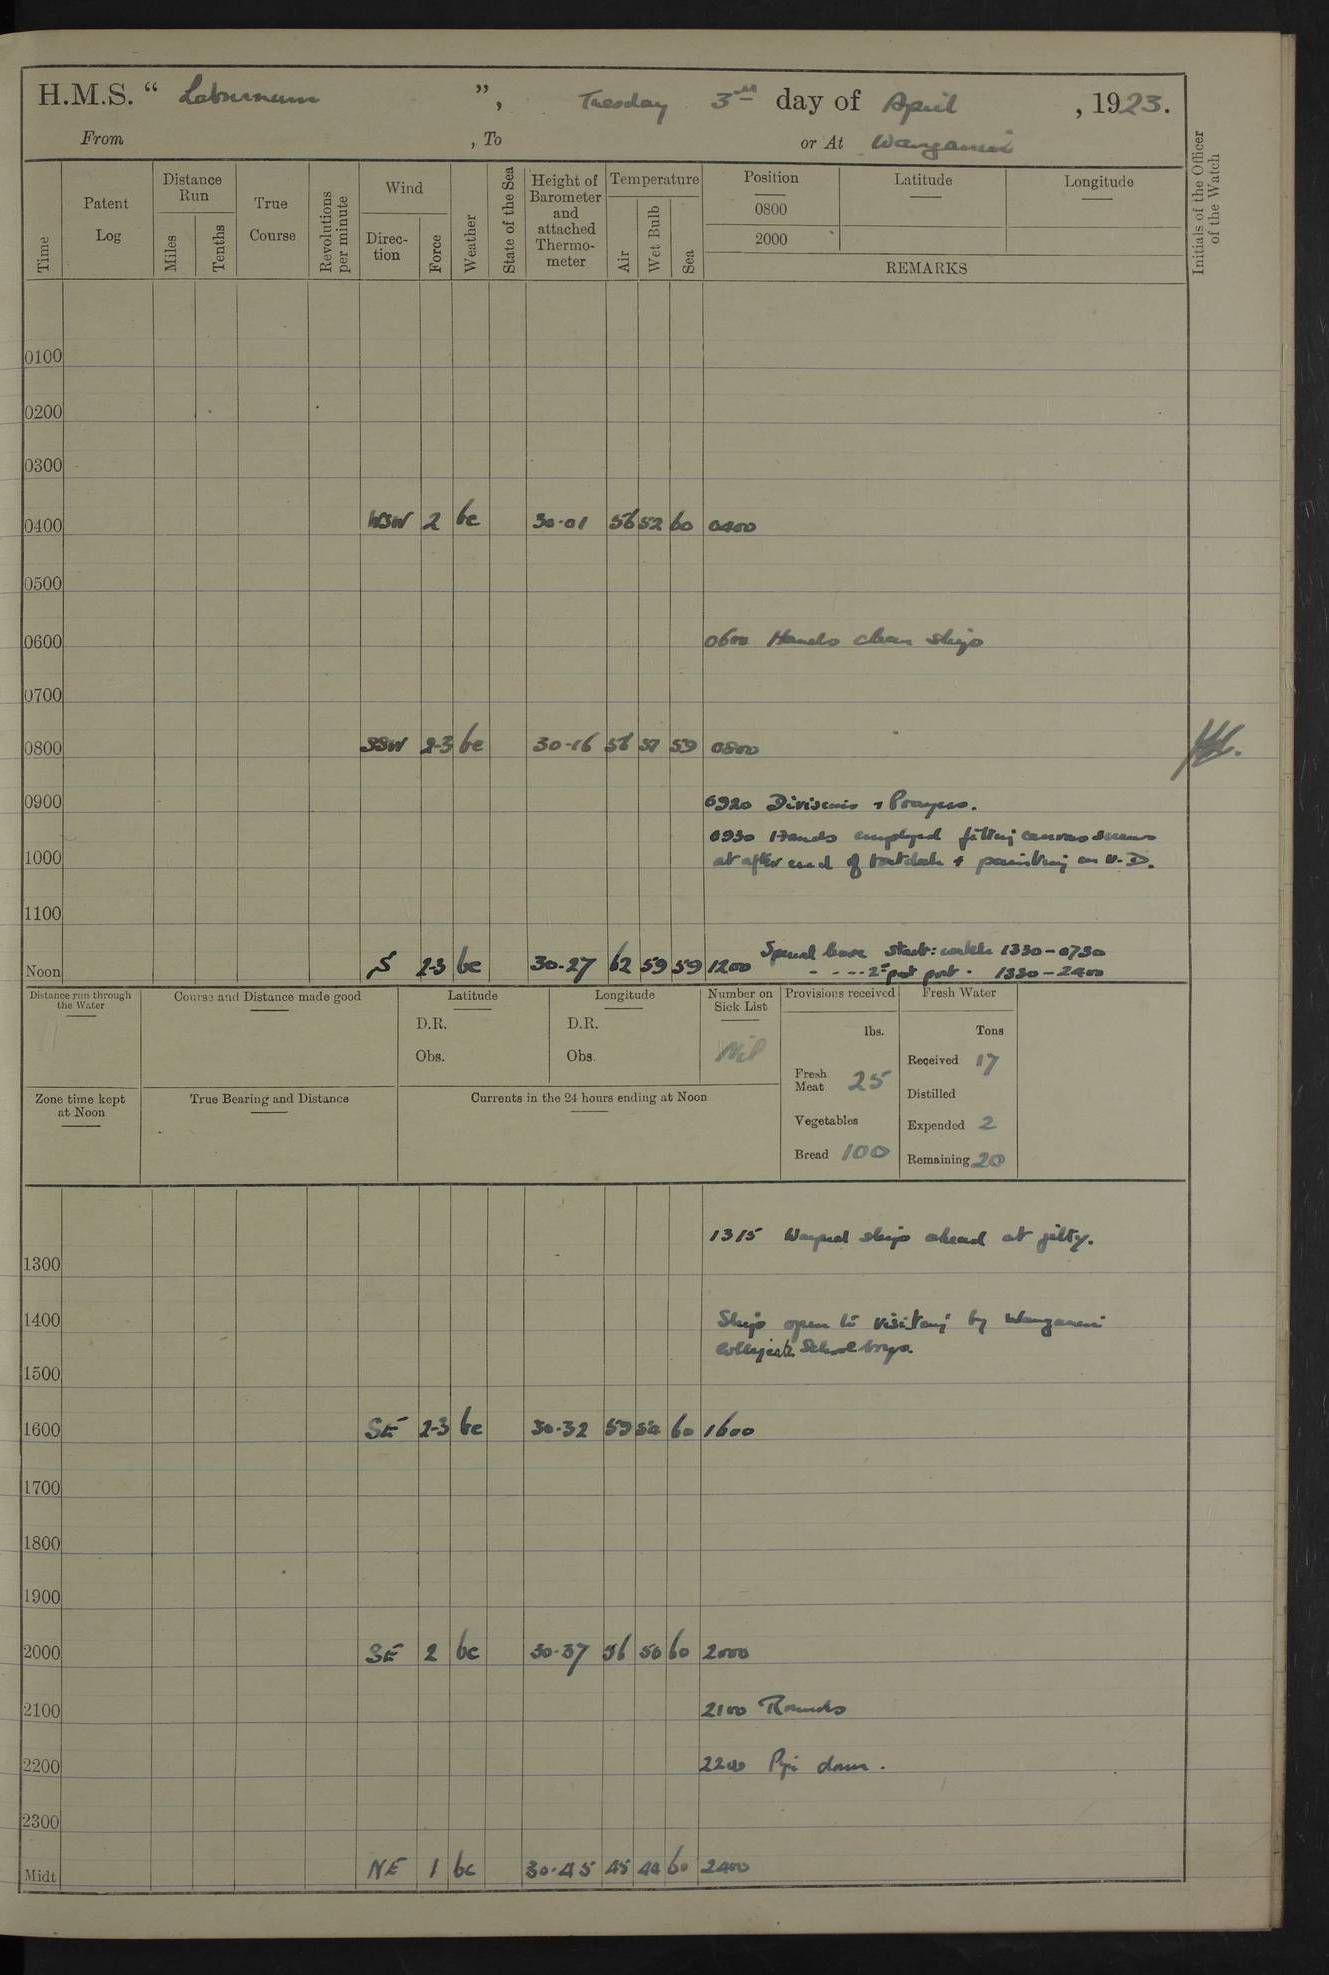 H.M.S. “ Laburnum ”, Tuesday 3rd day of April , 1923.
From , To or At Wanganui
Time
Patent Log
Distance Run
Miles
Tenths
True Course
Revolutions per minute
Wind
Direc-tion
Force
Weather
State of the Sea
Height of Barometer and attached Thermo-meter
Temperature
Air
Wet Bulb
Sea
Position Latitude Longitude
0800
2000
REMARKS
Initials of the Officer of the Watch
0100
0200
0300
0400 WSW 2 bc 30·01 56 52 60 0400
0500
0600 0600 Hands clean ship
0700
0800 SSW 2-3 bc 30·16 56 59 0800
0900 0920 Divisions + Prayers.
0930 Hands employed fitting canvas screens
1000 at after end of boatdeck + painting on U.D.
1100
Special leave Starb: watch 1330-0730
Noon S 2-3 bc 30·27 62 59 59 1200 - - - - 2nd part port · 1330-2400
Distance run through the Water
Course and Distance made good
Latitude
D.R.
Obs.
Longitude
D.R.
Obs.
Number on Sick List
Nil
Provisions received
lbs.
Fresh Meat 25
Vegetables
Bread 100
Fresh Water
Tons
Received 17
Distilled
Expended 2
Remaining 20
Zone time kept at Noon
True Bearing and Distance
Currents in the 24 hours ending at Noon
1315 Warped ship ahead at jetty.
1300
1400 Ship open to visiting by Wanganui
Collegiate School boys.
1500
1600 SE 2-3 bc 30·32 59 60 1600
1700
1800
1900
2000 SE 2 bc 30·37 56 50 60 2000
2100 2100 Rounds
2200 2200 Pipe down.
2300
Midt NE 1 bc 30·45 45 44 60 2400